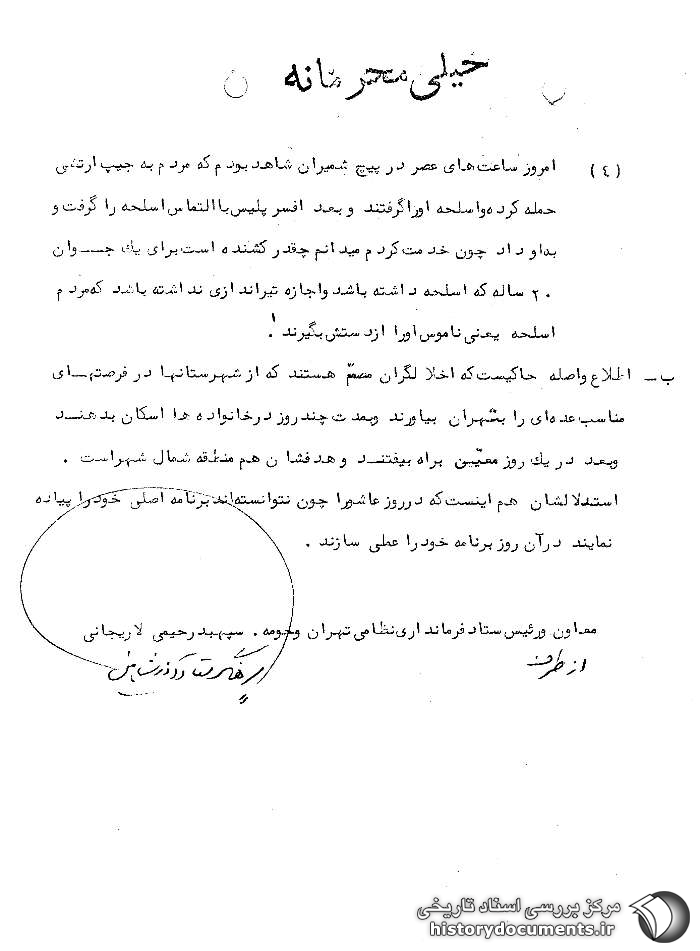 خیلی محرمانه
(٤) امروز ساعت‌های عصر در پیچ شمیران شاهد بودم که مردم به جیپ ارتشی
حمله کرده واسلحه اورا گرفتند و بعد افسر پلیس باالتماس اسلحه را گرفت و
به او داد چون خدمت کردم میدانم چقدر کشنده است برای یك جوان
۲۰ ساله که اسلحه داشته باشد واجازه تیراندازی نداشته باشد که مردم
اسلحه یعنی ناموس اورا ازدستش بگیرند !
ب - اطلاع واصله حاکیست که اخلالگران مصمّم هستند که از شهرستانها در فرصتهای
مناسب عده‌ای را بتهران بیاورند و بمدت چند روز در خانواده ها اسکان بدهند
وبعد در یك روز معیّن براه بیفتند و هدفشان هم منطقه شمال شهر است .
استدلالشان هم اینست که در روز عاشورا چون نتوانسته‌اند برنامه اصلی خود را پیاده
نمایند در آن روز برنامه خود را عملی سازند .
معاون و رئیس ستاد فرمانداری نظامی تهران و حومه . سپهبد رحیمی لاریجانی
از طرف
مرکز بررسی اسناد تاریخی
historydocuments.ir